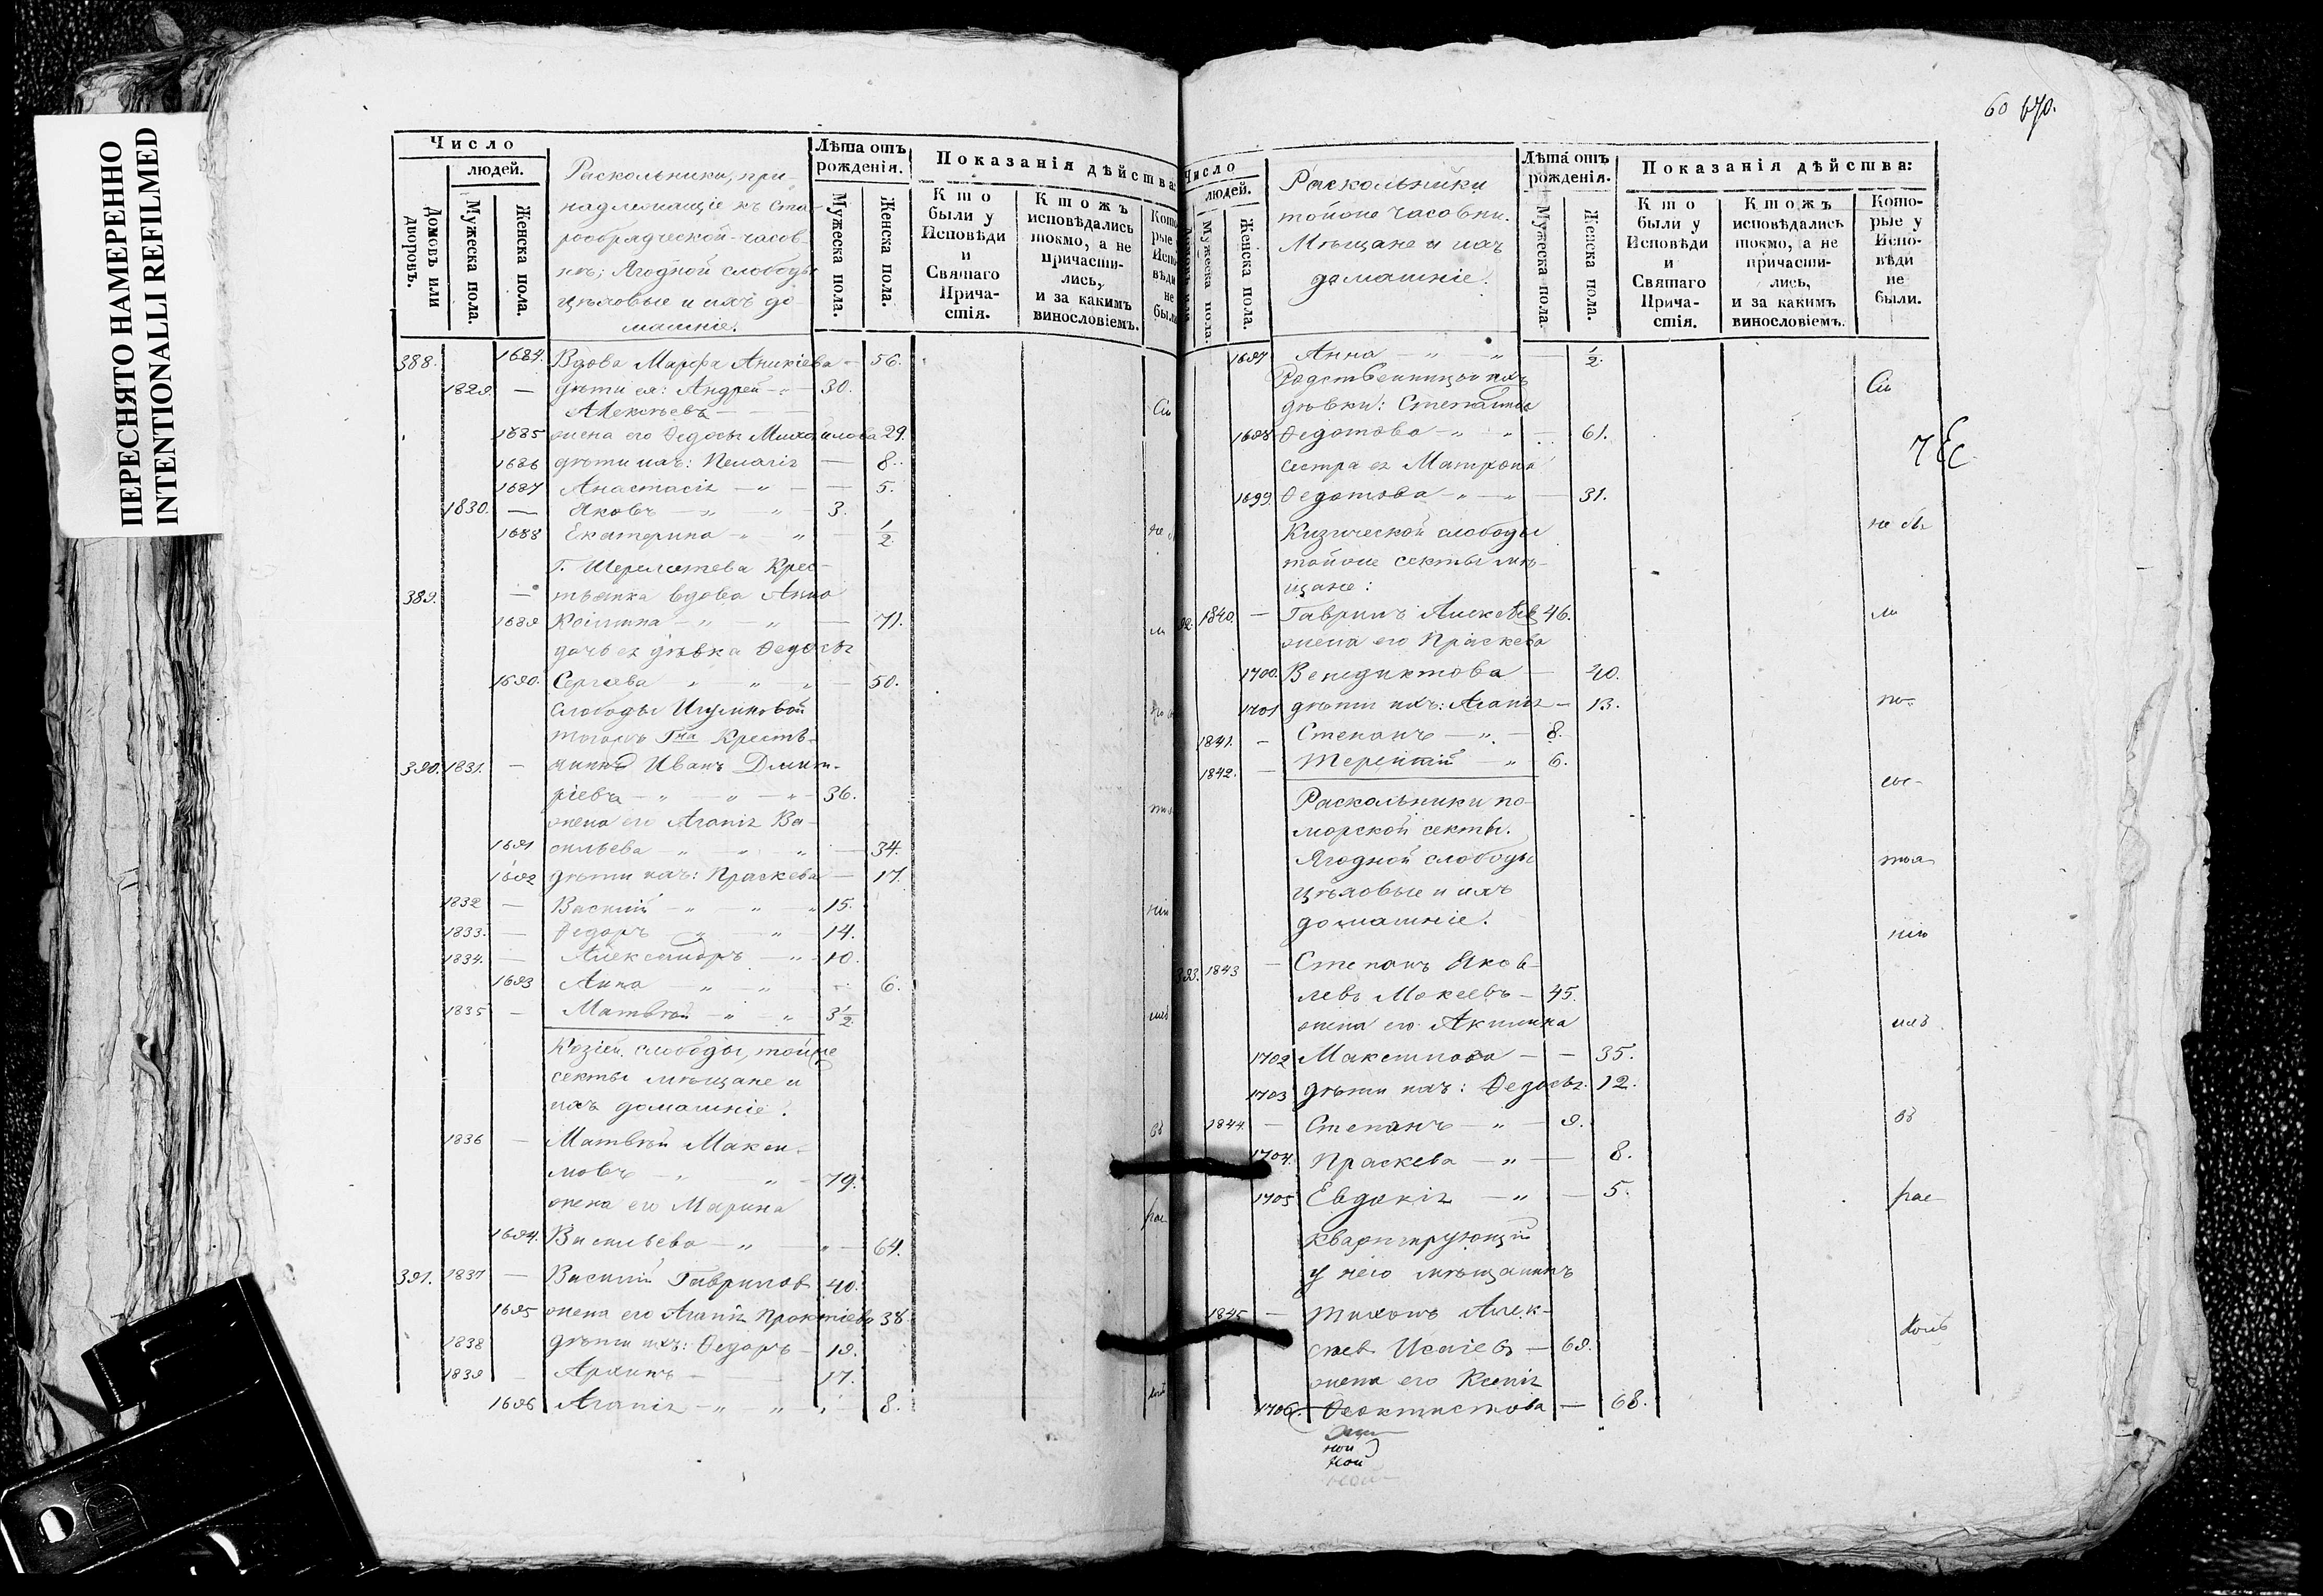 ПЕРЕСНЯТО НАМЕРЕННО
INTENTIONALLI REFILMED
Число
людей.
Домовъ или дворовъ.
Мужеска пола.
Женска пола.
Раскольники, при-
надлежащіе къ Ста-
рообрядческой часов-
нѣ; Ягодной слободы
цѣховые и ихъ до-
машніе.
Лѣта отъ рожденія.
Мужеска пола.
Женска пола.
Показанія дѣйства:
Кто были у Исповѣди и Святаго Причастія.
Ктожъ исповѣдались токмо, а не причастились, и за какимъ винословіемъ.
388. 1684. Вдова Марфа Аникіева — 56.
1829. — дѣти ея: Андрей — 30.
Алексѣевъ
1685 жена его Ѳедосья Михайлова 29.
1686 дѣти ихъ: Пелагія — 8.
1687 Анастасія — 5.
1830. — Яковъ — 3.
1688 Екатерина — 1/2
Г. Шереметева Крес-
389. — тьянка вдова Анна
1689 Козмина — 71.
дочь ея дѣвка Ѳедосья
1690. Сергѣева — 50.
Слободы
тогожъ Гна Крестья-
390. 1831. — нинъ Иванъ Дмит-
ріевъ — 36.
жена его Агапія Ва-
1691 сильева — 34.
1692 дѣти ихъ: Праскева — 17.
1832 — Василій — 15.
1833. — Ѳедоръ — 14.
1834. — Александръ — 10.
1693 Анна — 6.
1835 — Матвѣй — 3 1/2
Козіей слободы, тойже
секты мѣщане и
ихъ домашніе.
1836 — Матвѣй Макси-
мовъ — 79.
жена его Марина
1694. Васильева — 64.
391. 1837 — Василій Гавриловъ 40.
1695 жена его Агапія 38.
1838 дѣти ихъ: Ѳедоръ — 19.
1839 — Архипъ — 17.
1696 Агапія — 8.
60 670.
Число
людей.
Мужеска пола.
Женска пола.
Раскольники
тойже часовни.
Мѣщане и ихъ
домашніе.
Лѣта отъ рожденія.
Мужеска пола.
Женска пола.
Показанія дѣйства:
Кто были у Исповѣди и Святаго Причастія.
Ктожъ исповѣдались токмо, а не причастились, и за какимъ винословіемъ.
Которые у Исповѣди не были.
1697 Анна — 1/2
Родственницы ихъ
дѣвки: Степанида
1698 Ѳедотова — 61.
сестра ея Матрона
1699. Ѳедотова — 31.
Кизической слободы
тойже секты мѣ-
щане:
1840. — Гаврилъ Алексѣев 46.
жена его Праскева
1700. Венедиктова — 40.
1701 дѣти ихъ: Агапія — 13.
1841. — Степанъ — 8.
1842. — Терентій — 6.
Раскольники по-
морской секты.
Ягодной слободы
цѣховые и ихъ
домашніе.
393. 1843 — Степанъ Яков-
левъ Мокеевъ — 45.
жена его Акилина
1702 Максимова — 35.
1703 дѣти ихъ: Ѳедосья 12.
1844. — Степанъ — 9.
1704. Праскева — 8.
1705 Евдокія — 5.
Квартирующій
у него мѣщанинъ
1845 — Тихонъ Алек-
сѣев Исаіевъ — 69.
жена его Ксенія
1706. Ѳеоктистова — 68.
ной
ной
ной